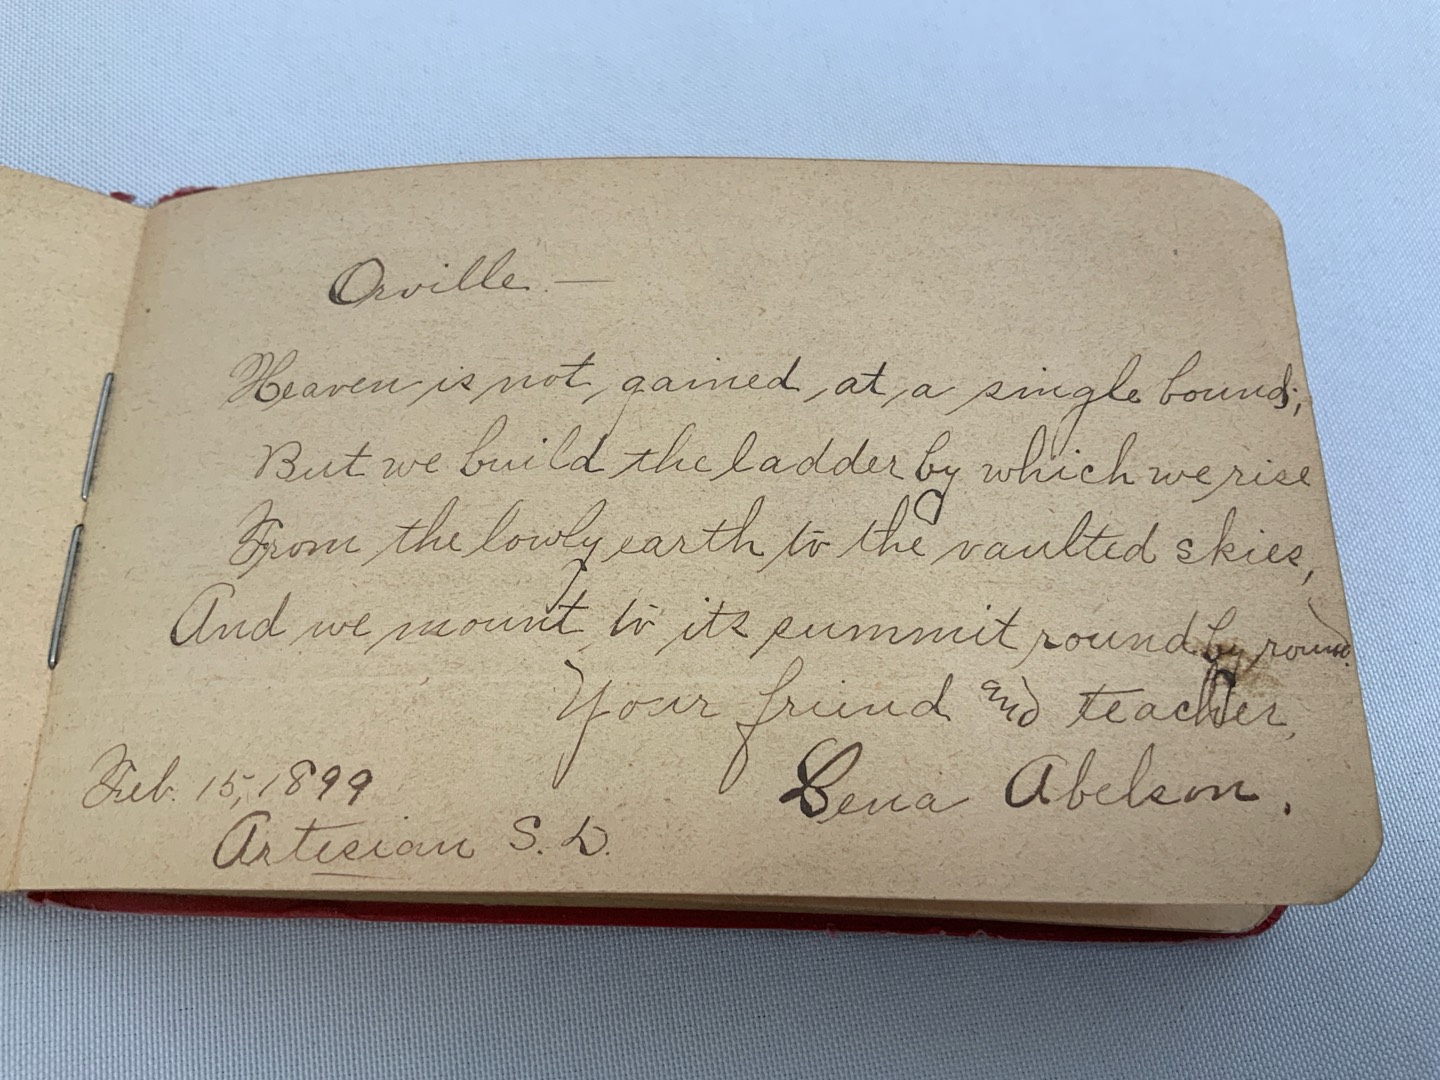 Orville. —
Heaven is not gained at a single bound;
But we build the ladder by which we rise
From the lowly earth to the vaulted skies,
And we mount to its summit round by round.
Your friend and teacher,
Lena Abelson.
Feb. 15, 1899
Artesian S. D.